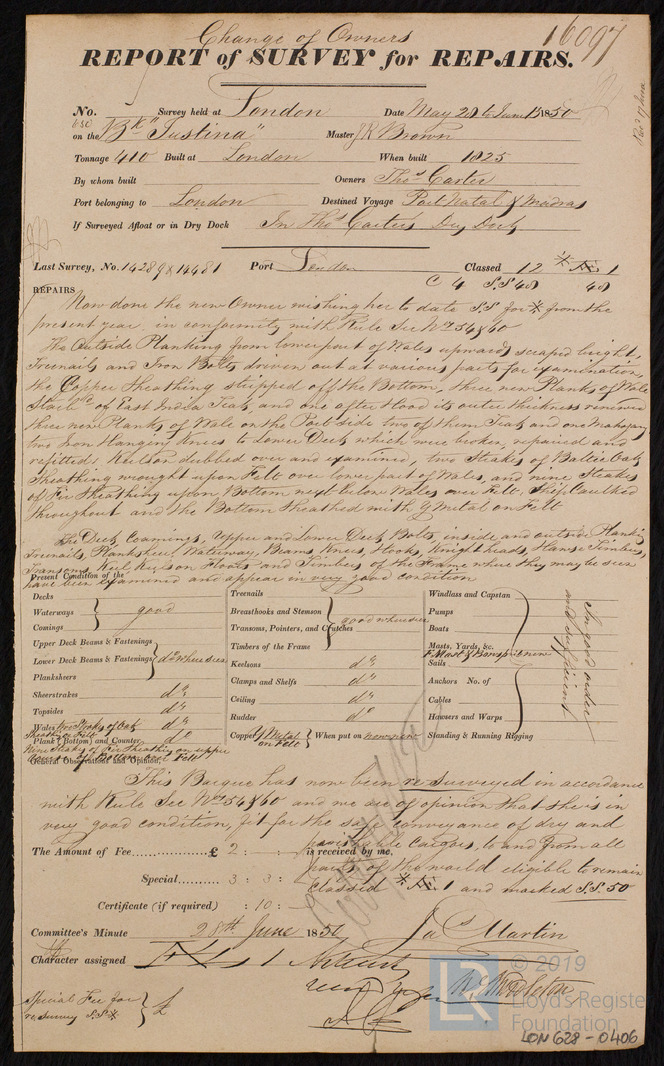 Change of Owners
16097
REPORT of SURVEY for REPAIRS.
No. Survey held at London Date May 28 to June 15 1850
on the Bk "Justina" Master J K Brown
Tonnage 410 Built at London When built 1825
By whom built Owners Thos Carter
Port belonging to London Destined Voyage Port Natal & Madras
If Surveyed Afloat or in Dry Dock In Thos Carters Dry Dock
Last Survey, No. 14289 & 14481 Port London Classed 12 * Æ 1
C 4 S.S 48 48
REPAIRS
Now done the new Owner wishing her to date S.S for * from the
present year in conformity with Rule Sec Nos 54 & 60
The Outside Planking from lower part of Wales upwards scraped bright,
Treenails and Iron Bolts driven out at various parts for examination,
the Copper Sheathing stripped off the Bottom, three new Planks of Wale
Starbd of East India Teak and one after Hood its outer thickness renewed
three new Planks of Wale on the Port side two of them Teak and one Mahogany
two Iron Hanging Knees to Lower Deck which were broken, repaired and
refitted. Keelson dubbed over and examined, two Strakes of Baltic Oak
Sheathing wrought upon Felt over lower part of Wales, and nine Strakes
of Fir Sheathing upon Bottom next below Wales over Felt, Ship Caulked
throughout and the Bottom Sheathed with Y Metal on Felt
The Deck, Coamings, Upper and Lower Deck Bolts, inside and outside Planks
Treenails, Planksheer, Waterway, Beams Knees, Hooks, Knightheads, Hawse Timbers,
Transoms, Keel, Keelson Floors and Timbers of the Frame where they may be seen
have been examined and appear in very good condition
Present Condition of the
Decks
Waterways good
Comings
Upper Deck Beams & Fastenings
Lower Deck Beams & Fastenings do where seen
Planksheers
Sheerstrakes do
Topsides do
Wales Two Strakes of Oak do
Sheathg on Felt
Plank (Bottom) and Counter do
Nine Strakes of Fir Sheathing on upper
part of Bottom over Felt
Treenails
Breasthooks and Stemson
Transoms, Pointers, and Crutches good where seen
Timbers of the Frame
Keelsons do
Clamps and Shelfs do
Ceiling do
Rudder do
Copper Y Metal on Felt When put on now new
Windlass and Capstan
Pumps
Boats
Masts, Yards, &c.
F Mast & Bowsprit new
Sails
Anchors No. of
Cables
Hawsers and Warps
Standing & Running Rigging
In good order
and sufficient
General Observations and Opinion,
This Barque has now been re surveyed in accordance
with Rule Sec Nos 54 & 60 and we are of opinion that she is in
very good condition, fit for the safe conveyance of dry and
perishable Cargoes, to and from all
parts of the world eligible to remain
Classed * Æ 1 and marked S.S. 50
The Amount of Fee............... £ 2 : - : is received by me,
Special.......... 3 : 3 :
Certificate (if required) : 10 : -
Committee's Minute 28th June 1850
Jas Martin
Character assigned
W Middleton
Special Fee for
re survey S.S * £
© 2019
LR
Lloyd's Register
Foundation
LON 628-0406